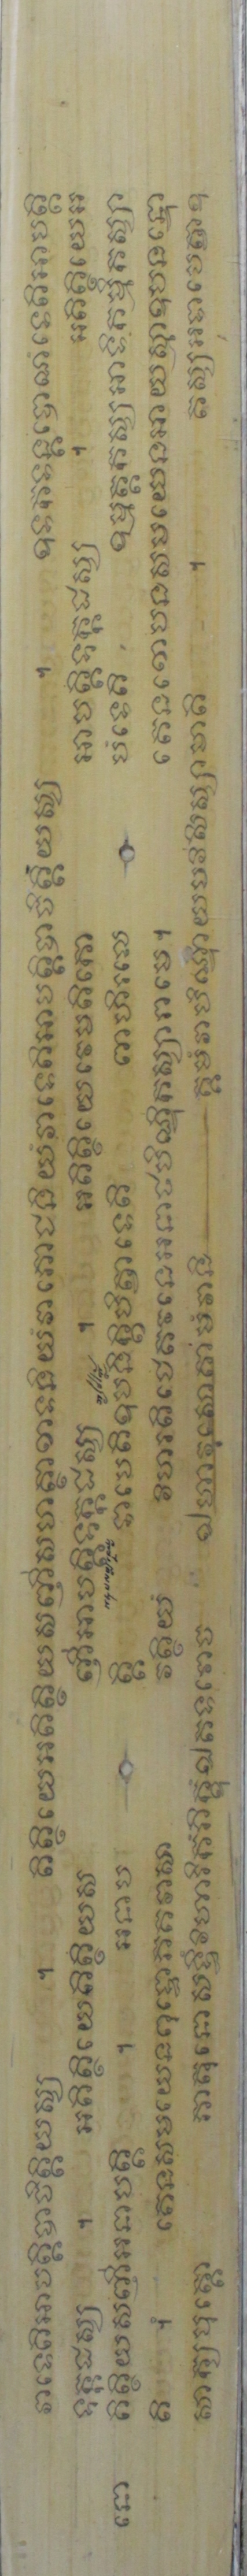 វាទេតិអាបត្តិបាចិត្តិយស្ស ។ តិត្ថិយេអតិត្ថិយសញ្ញីសហត្ថាខាទនិយំវាភោជនិយំវាទេតិអាបត្តិបាចិត្តិយស្ស ។ ឧទកទន្តបោណំទេតិអាបត្តិ
ទុក្កដស្ស ។ អតិត្ថិយេតិត្ថិយសញ្ញីអាបត្តិទុក្កដស្ស ។ អតិត្ថិយេវេមតិកោអាបត្តិទុក្កដស្ស ។ អតិត្ថិយេអ
តិត្ថិយសញ្ញីអនាបត្តិ ។ អនាបត្តិ ទាបេតិឧបនិក្ខិបិត្វាទេតិ ពាហិរលេបំទេតិ ឧម្មត្តកស្សអាទិកម្មិកស្សា
តិ ។ តេនសមយេនពុទ្ធោភគវាសាវត្ថិយំ វិហរតិជេតវនេអនាថបិណ្ឌិកស្សារាមេ។ តេនខោបនសមយេនអាយស្មាឧបនន្ទោ
សាក្យបុត្តោ ភាតុនោសទ្ធិវិហារិកំភិក្ខុំឯតទវោច ឯហាវុសោគាមំវានិគមំវាបិណ្ឌាយបវិសិស្សាមាតិ ។ តស្សអទាបេត្វាឧ